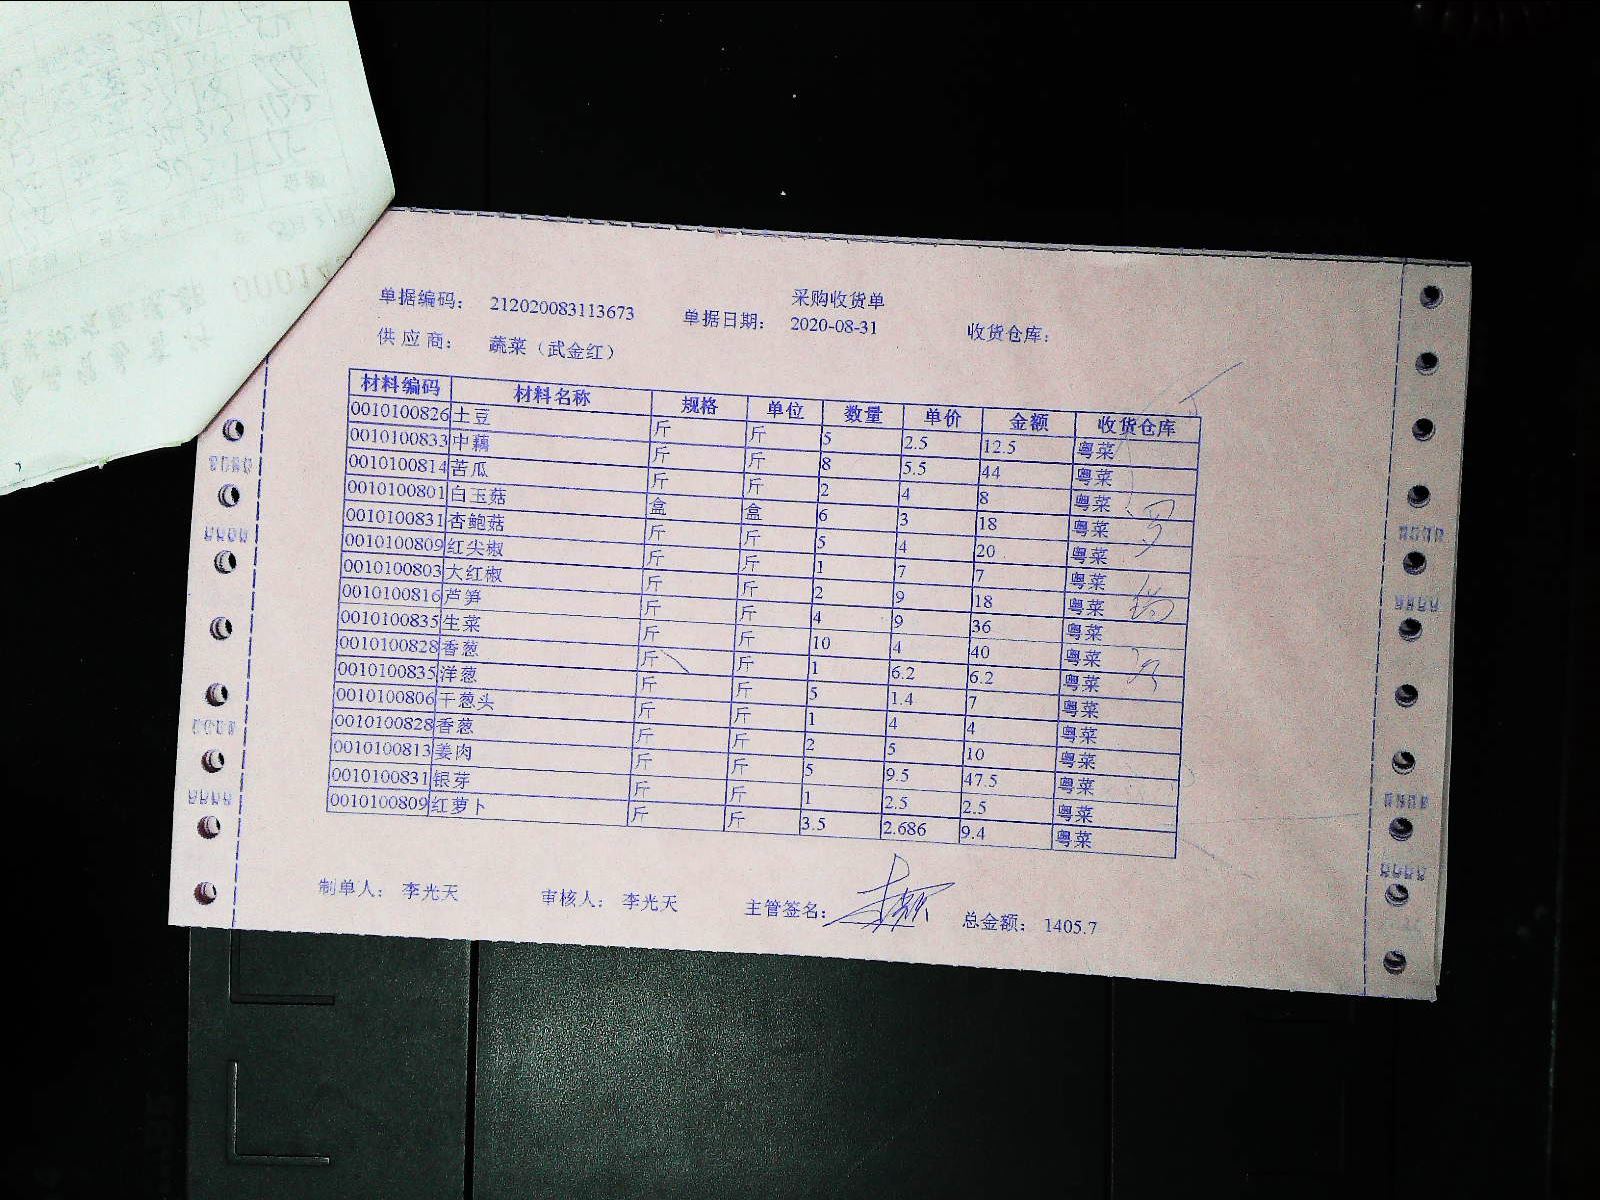 采购收货单
单据编码： 212020083113673 单据日期： 2020-08-31 收货仓库：
供 应 商： 蔬菜（武金红）
材料编码 材料名称 规格 单位 数量 单价 金额 收货仓库
0010100826 土豆 斤 斤 5 2.5 12.5 粤菜
0010100833 中藕 斤 斤 8 5.5 44 粤菜
0010100814 苦瓜 斤 斤 2 4 8 粤菜
0010100801 白玉菇 盒 盒 6 3 18 粤菜
0010100831 杏鲍菇 斤 斤 5 4 20 粤菜
0010100809 红尖椒 斤 斤 1 7 7 粤菜
0010100803 大红椒 斤 斤 2 9 18 粤菜
0010100816 芦笋 斤 斤 4 9 36 粤菜
0010100835 生菜 斤 斤 10 4 40 粤菜
0010100828 香葱 斤 斤 1 6.2 6.2 粤菜
0010100835 洋葱 斤 斤 5 1.4 7 粤菜
0010100806 干葱头 斤 斤 1 4 4 粤菜
0010100828 香葱 斤 斤 2 5 10 粤菜
0010100813 姜肉 斤 斤 5 9.5 47.5 粤菜
0010100831 银芽 斤 斤 1 2.5 2.5 粤菜
0010100809 红萝卜 斤 斤 3.5 2.686 9.4 粤菜
制单人： 李光天 审核人： 李光天 主管签名： 总金额： 1405.7